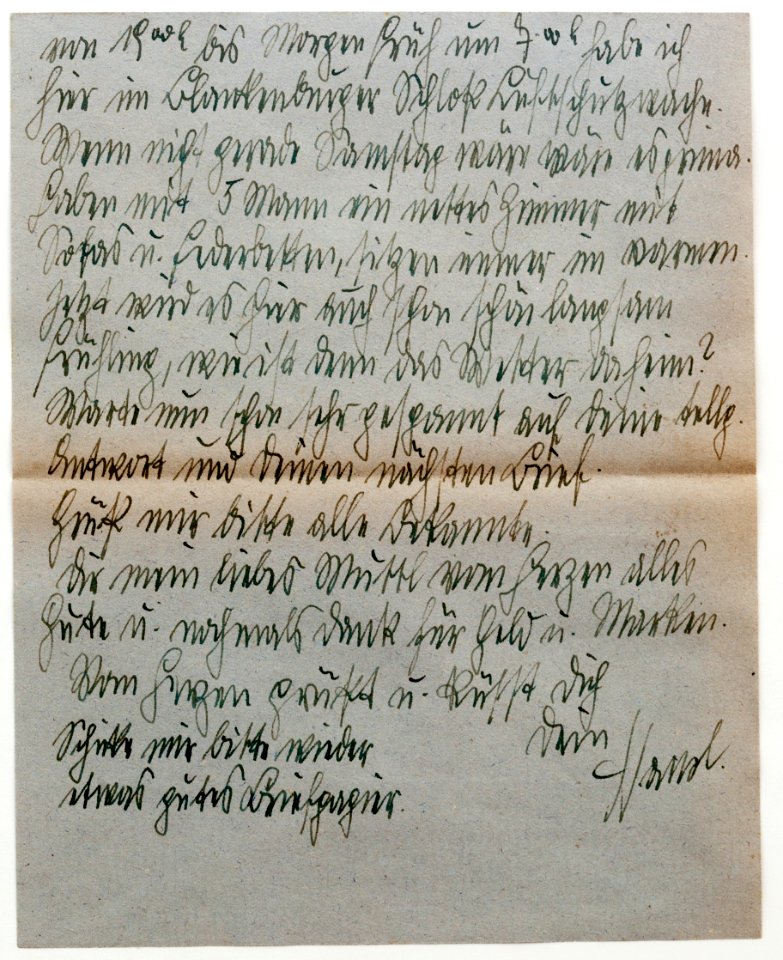 von 19 00 h bis Morgen früh um 7 00 h habe ich
hier im Blankenburger Schloß Luftschutzwache.
Wenn nicht gerade Samstag wäre wäre es prima.
Haben mit 5 Mann ein nettes Zimmer mit
Sofas u. Federbetten, sitzen immer im warmen.
Jetzt wird es hier auch schon schön langsam
Frühling, wie ist denn das Wetter daheim?
Warte nun schon sehr gespannt auf deine tellg.
Antwort und deinen nächsten Brief.
Grüß mir bitte alle Bekannte.
Dir mein liebes Muttl von Herzen alles
Gute u. nochmals dank für Geld u. Marken.
Von Herzen grüßt u. küsst Dich
Dein
Schicke mir bitte wieder
etwas gutes Briefpapier.